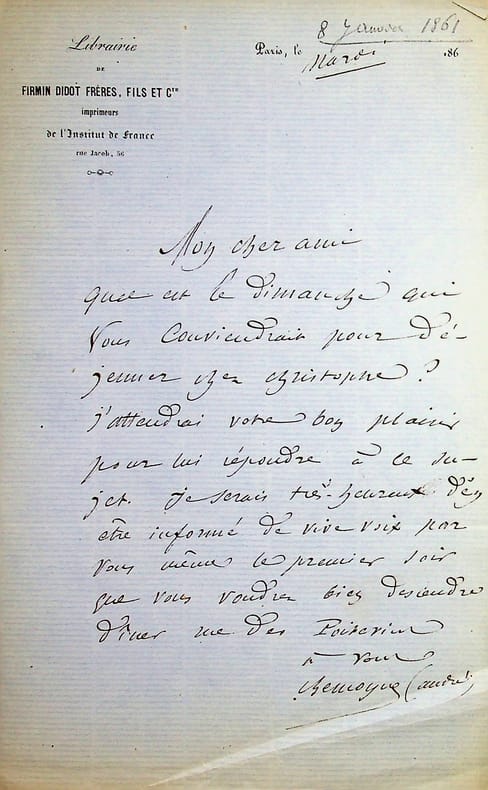 8 Janvier 1861
Librairie
DE
FIRMIN DIDOT FRÈRES, FILS ET Cie
imprimeurs
de l'Institut de France
rue Jacob, 56
Paris, le Mardi 186
Mon cher ami
quel est le dimanche qui
vous conviendrait pour dé-
jeuner chez christophe ?
j'attendrai votre bon plaisir
pour lui répondre à ce su-
jet. je serais très-heureux d'en
être informé de vive voix par
vous même le premier soir
que vous voudrez bien descendre
dîner rue des Poitevins
à vous
Lemoyne (andré)